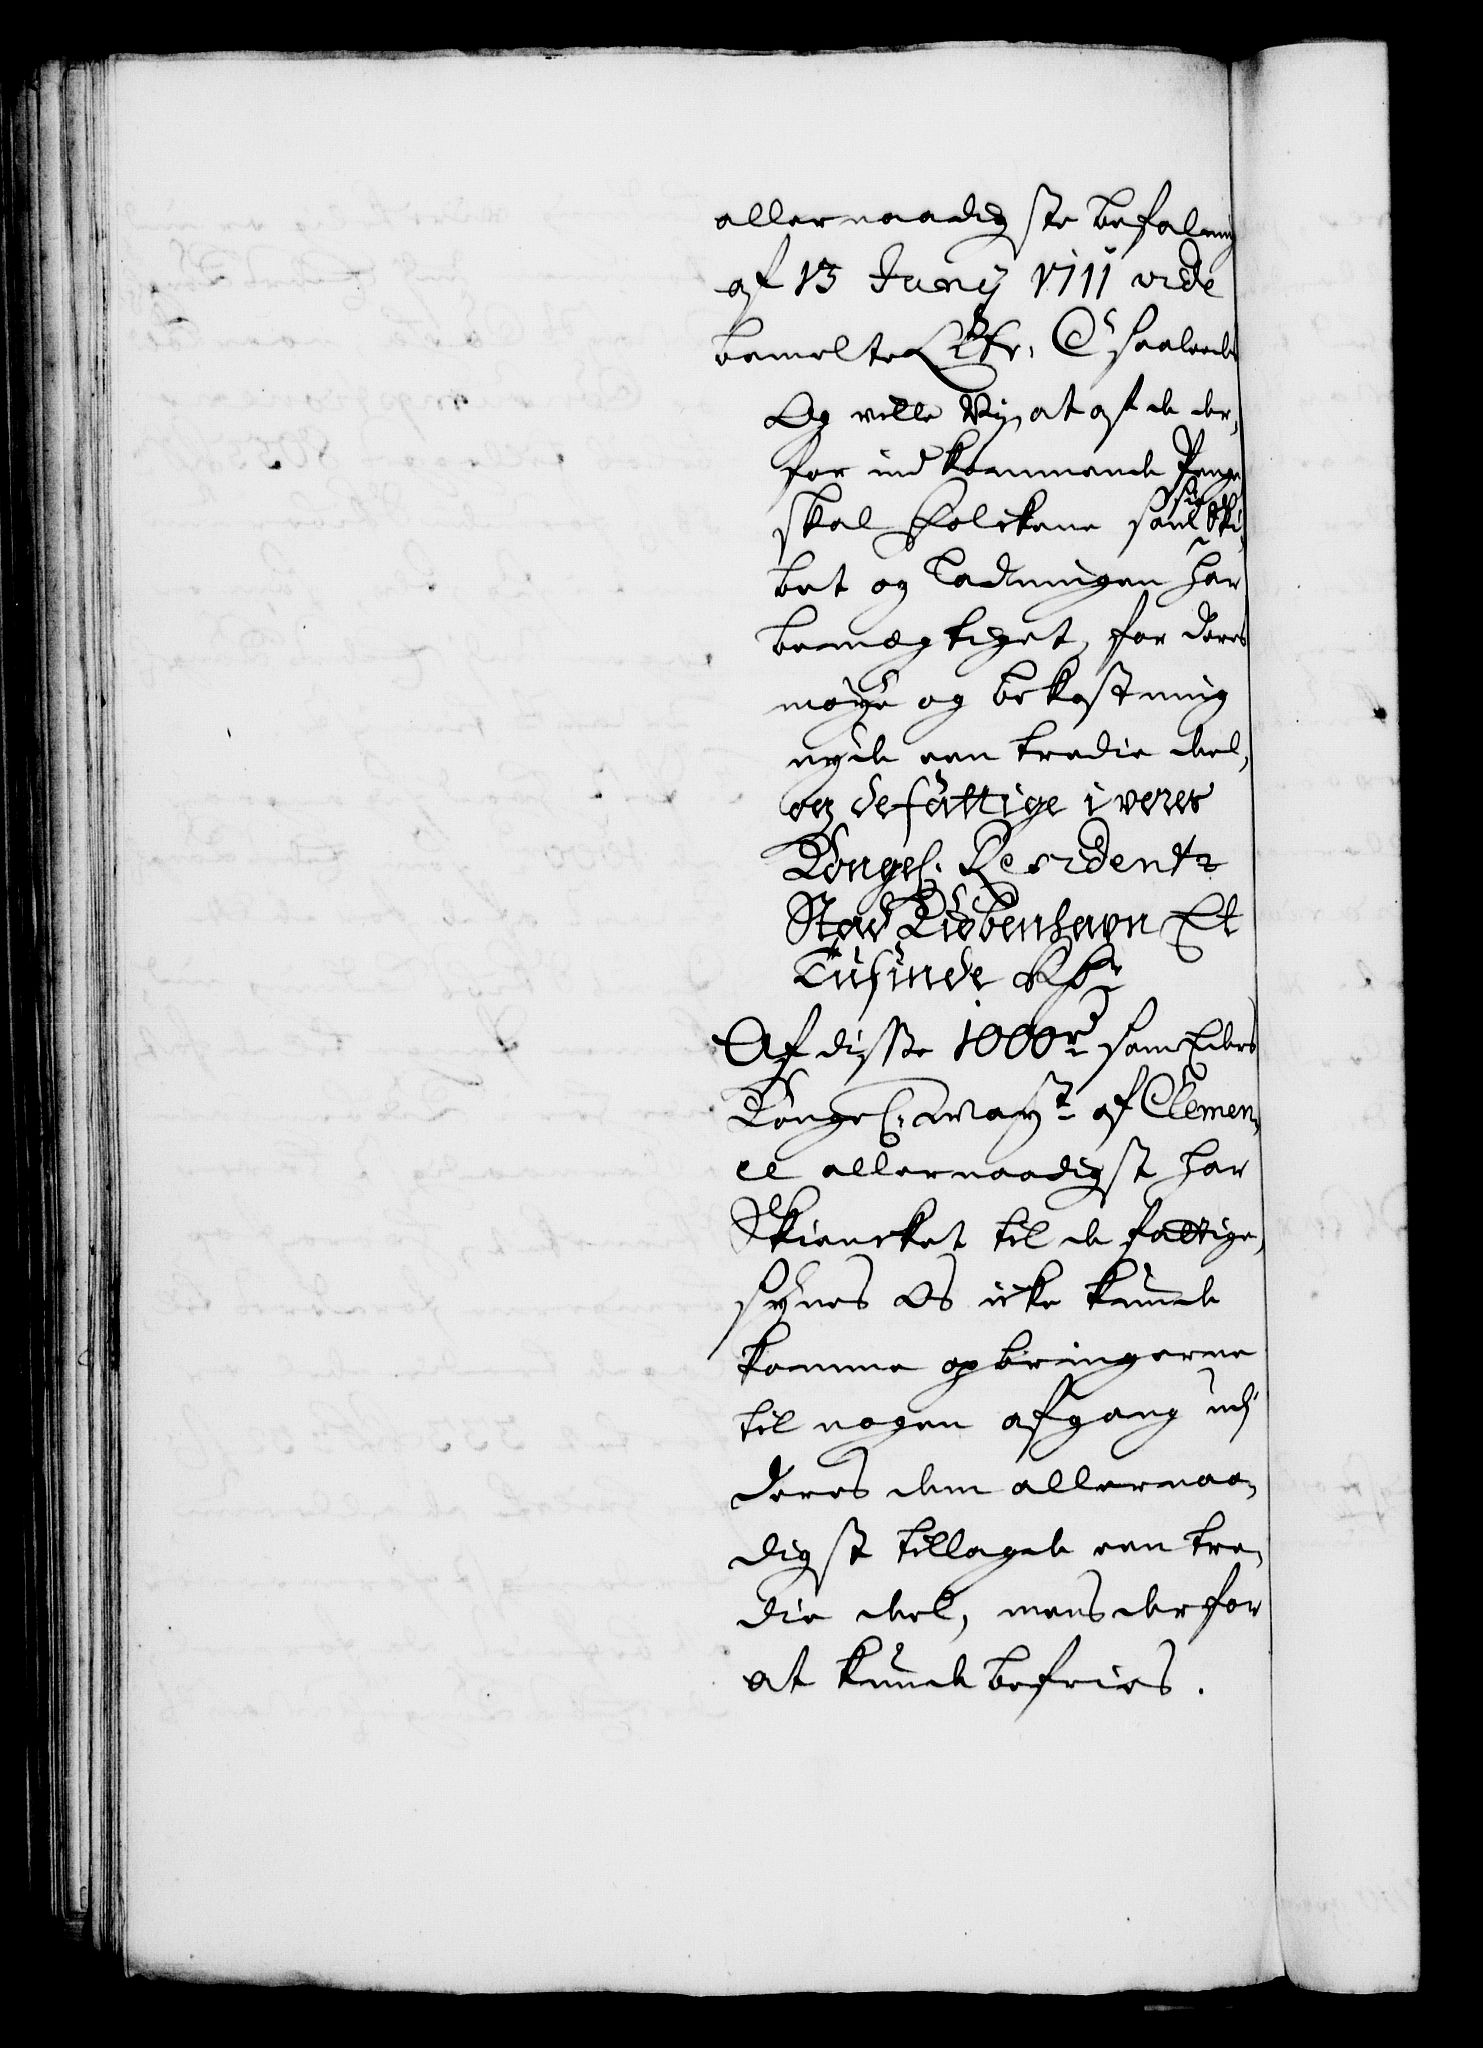 allernaadigste befaling
af 13 Junij 1711 vide
bemelte Litr. C saaleedes
Og ville Vij, at af de der,
for indkommende Penge
skal Folckene som sig Ski,
bet og Ladningen har
bemægtiget, for deres
møye og bekostning
nyde een tredie deel,
og de fattige i vores
Kongel. Residentz
Stad Kiøbenhavn Et
Tusinde Rdr
Af disse 1000 rd som Eders
Kongel. Mayt af Clemen,
ce allernaadigst har
Skiencket til de fattige,
synes Os icke kunde
komme opbringerne
til nogen afgang udj
deres dem allernaa,
digst tillagde een tre,
die deel, mens derfor
at kunde befries.